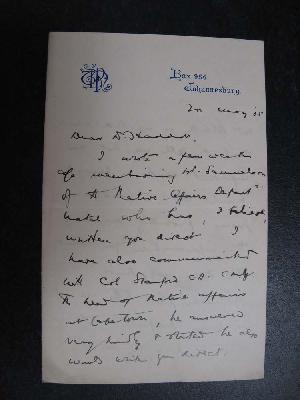 Box 956
Johannesburg.
Dear Dr Haddon.
I wrote a few weeks
ago mentioning Mr. Samuelson
of the Native Affairs Depart
Natal who has, I believe,
written you direct I
have also communicated
with Col Stanford CB. CMG.
the head of Native affairs
at Capetown, he answered
very kindly & stated he also
would write you direct.